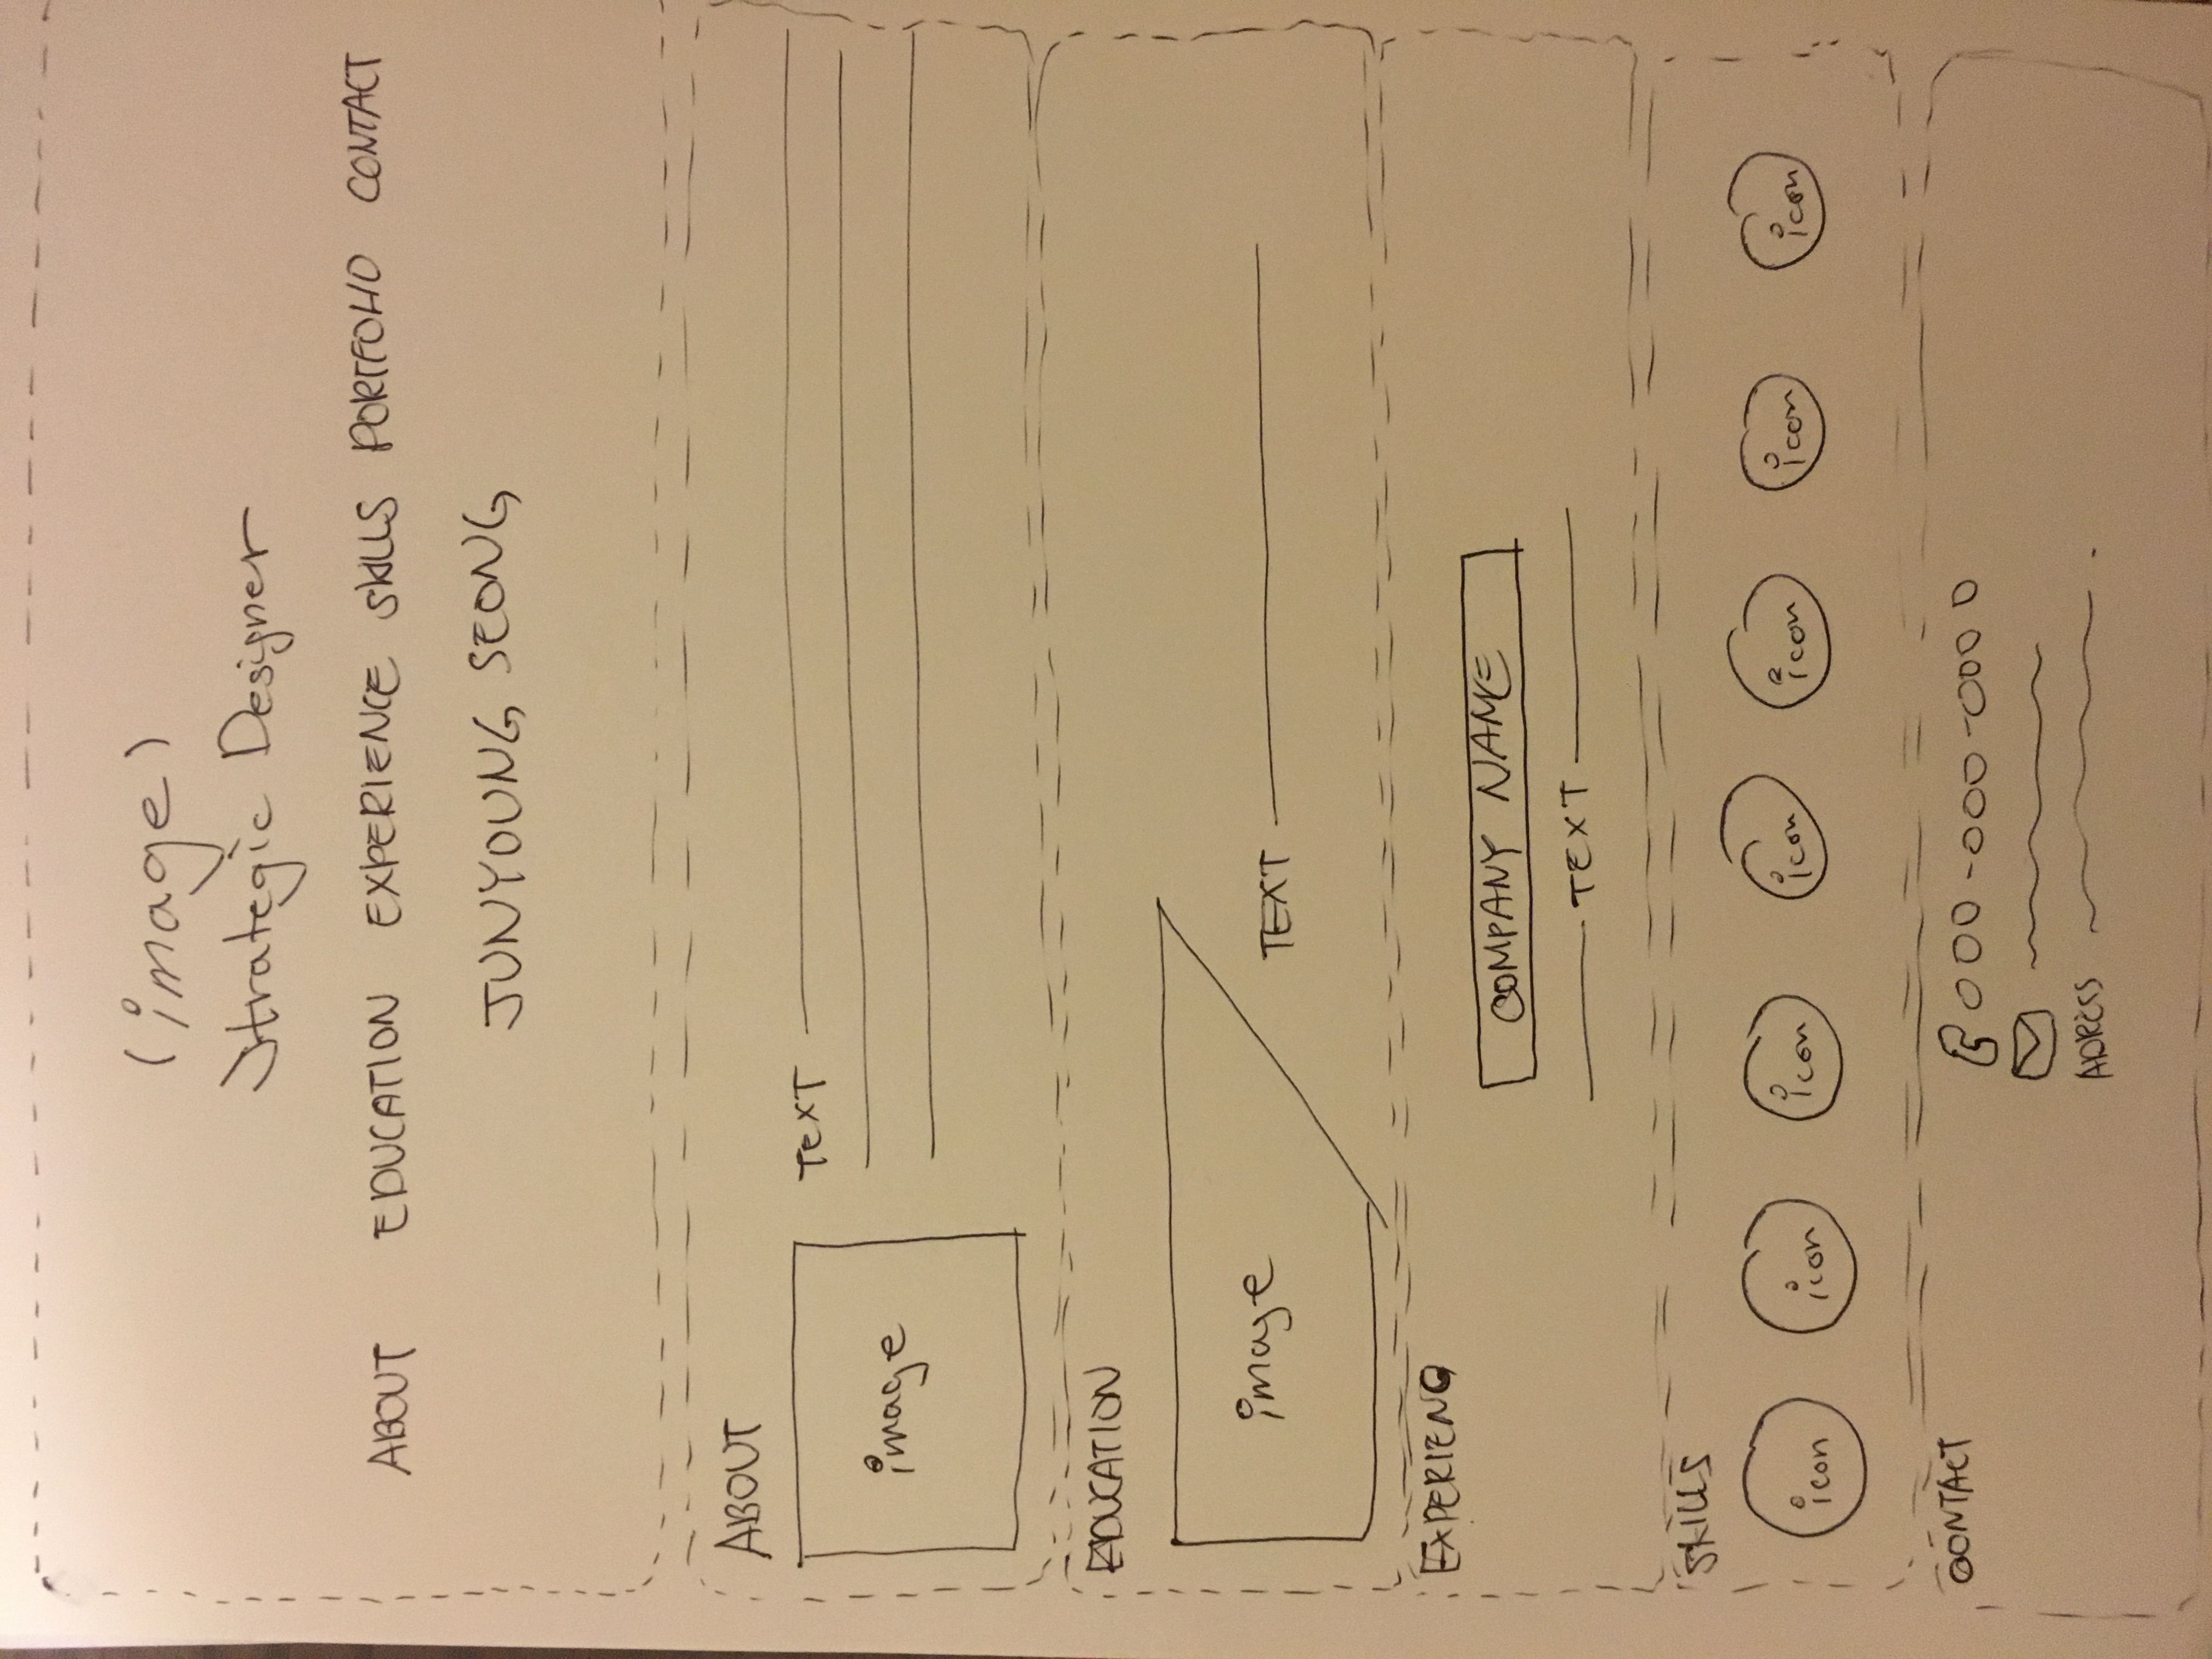 (image)
Strategic Designer
ABOUT EDUCATION EXPERIENCE SKILLS PORTFOLIO CONTACT
JUNYOUNG SEONG
ABOUT
image
TEXT
EDUCATION
image
TEXT
EXPERIENC
COMPANY NAME
TEXT
SKILLS
icon icon icon icon icon icon icon
CONTACT
000-000-0000
ADRESS